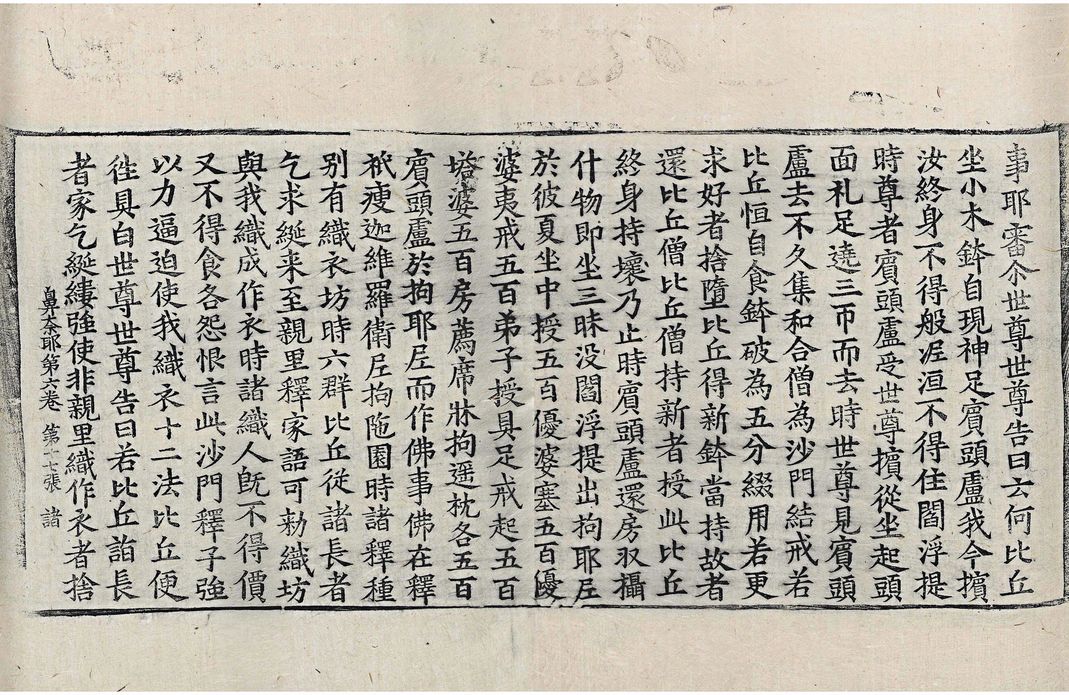 事耶審尒世尊世尊告曰云何比丘
坐小木鉢自現神足賓頭盧我今擯
汝終身不得般涅洹不得住閻浮提
時尊者賓頭盧受世尊擯從坐起頭
面礼足遶三帀而去時世尊見賓頭
盧去不久集和合僧為沙門結戒若
比丘恒自食鉢破為五分綴用若更
求好者捨墮比丘得新鉢當持故者
還比丘僧比丘僧持新者授此比丘
終身持壞乃止時賓頭盧還房収攝
什物即坐三昧没閻浮提出拘耶尼
於彼夏坐中授五百優婆塞五百優
婆夷戒五百弟子授具足戒起五百
塔婆五百房薦席牀拘遥枕各五百
賓頭盧於拘耶尼而作佛事佛在釋
衹瘦迦維羅衛尼拘陁園時諸釋種
別有織衣坊時六群比丘従諸長者
乞求綖来至親里釋家語可勑織坊
與我織成作衣時諸織人旣不得價
又不得食各怨恨言此沙門釋子強
以力逼迫使我織衣十二法比丘便
徃具白世尊世尊告曰若比丘詣長
者家乞綖縷強使非親里織作衣者捨
鼻奈耶第六卷 第十七張 諸